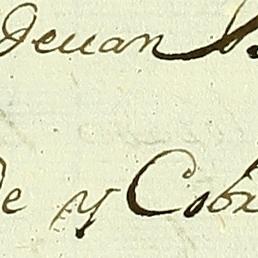 deuan
de y Cob